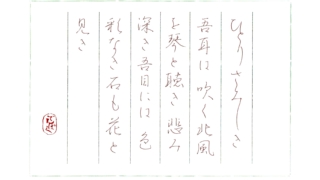 ひとり さみしき
吾耳は 吹く北風
を琴と聴き 悲み
深き吾目には 色
彩なき石も花と
見き